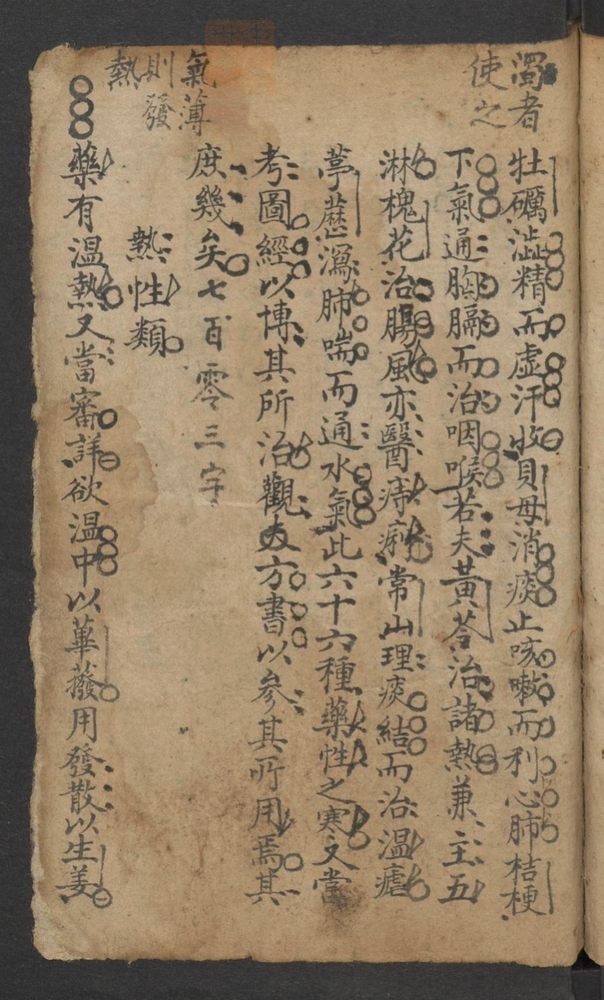 濁者
使之
牡礪澁精而虛汗收貝母消痰止咳嗽而利心肺桔梗
下氣通胸膈而治咽喉若夫黃芩治諸熱兼主五
淋槐花治腸風亦醫痔痢常山理痰結而治温瘧
葶藶瀉肺喘而通水氣此六十六種藥性之寒又當
考圖經以博其所治觀夫方書以參其所用焉其
庶幾矣七百零三字
氣薄
則發
熱
熱性類
藥有温熱又當審詳欲温中以蓽撥用發散以生姜